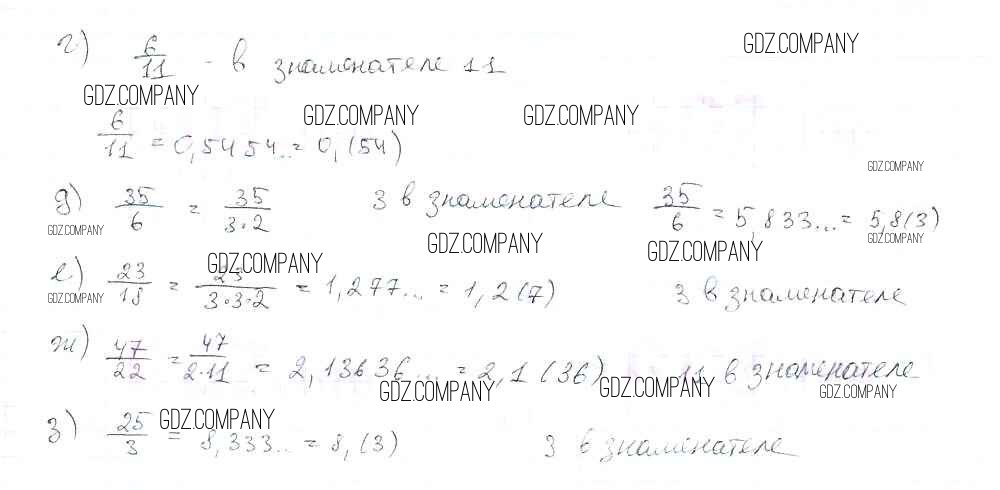 г) 6/11 - в знаменателе 11
GDZ.COMPANY
GDZ.COMPANY
GDZ.COMPANY
GDZ.COMPANY
6/11 = 0,5454.. = 0,(54)
GDZ.COMPANY
д) 35/6 = 35/3·2 3 в знаменателе 35/6 = 5,833... = 5,8(3)
GDZ.COMPANY
GDZ.COMPANY
GDZ.COMPANY
GDZ.COMPANY
GDZ.COMPANY
е) 23/18 = 23/3·3·2 = 1,277... = 1,2(7) 3 в знаменателе
GDZ.COMPANY
ж) 47/22 = 47/2·11 = 2,13636... = 2,1(36) 11 в знаменателе
GDZ.COMPANY
GDZ.COMPANY
GDZ.COMPANY
GDZ.COMPANY
з) 25/3 = 8,333.. = 8,(3) 3 в знаменателе